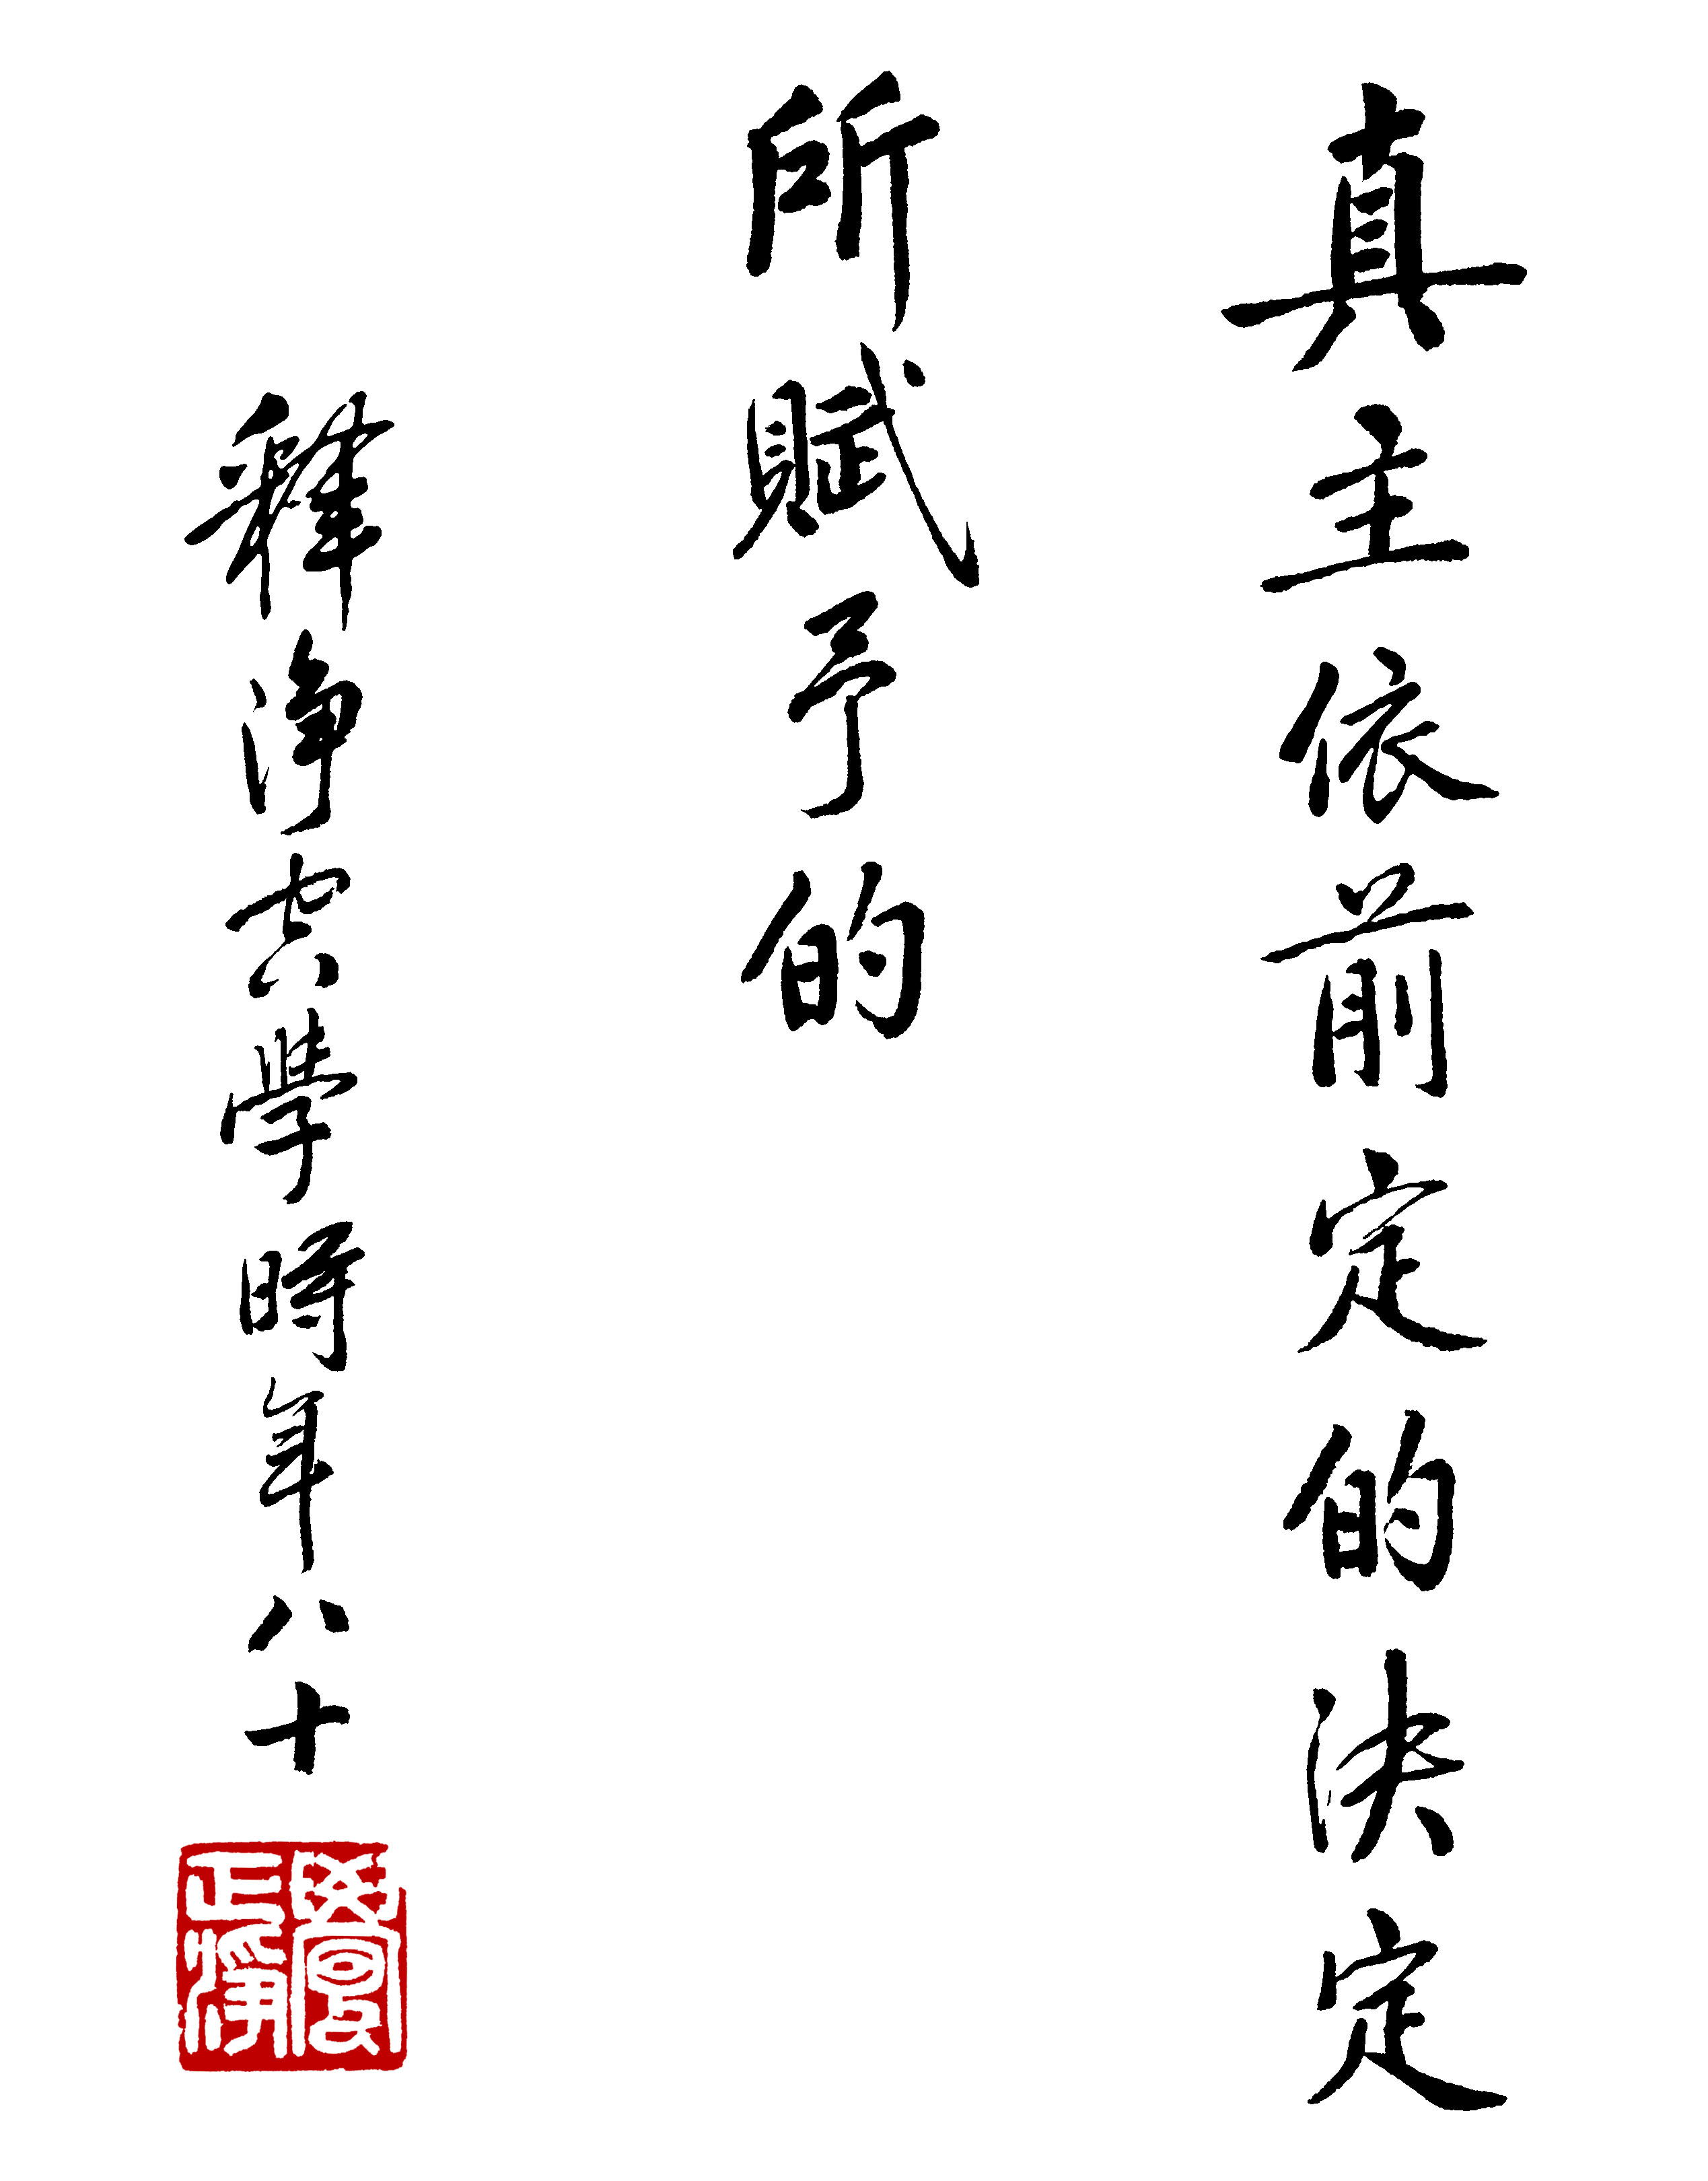 真主依前定的決定
所賦予的
釋淨空學時年八十